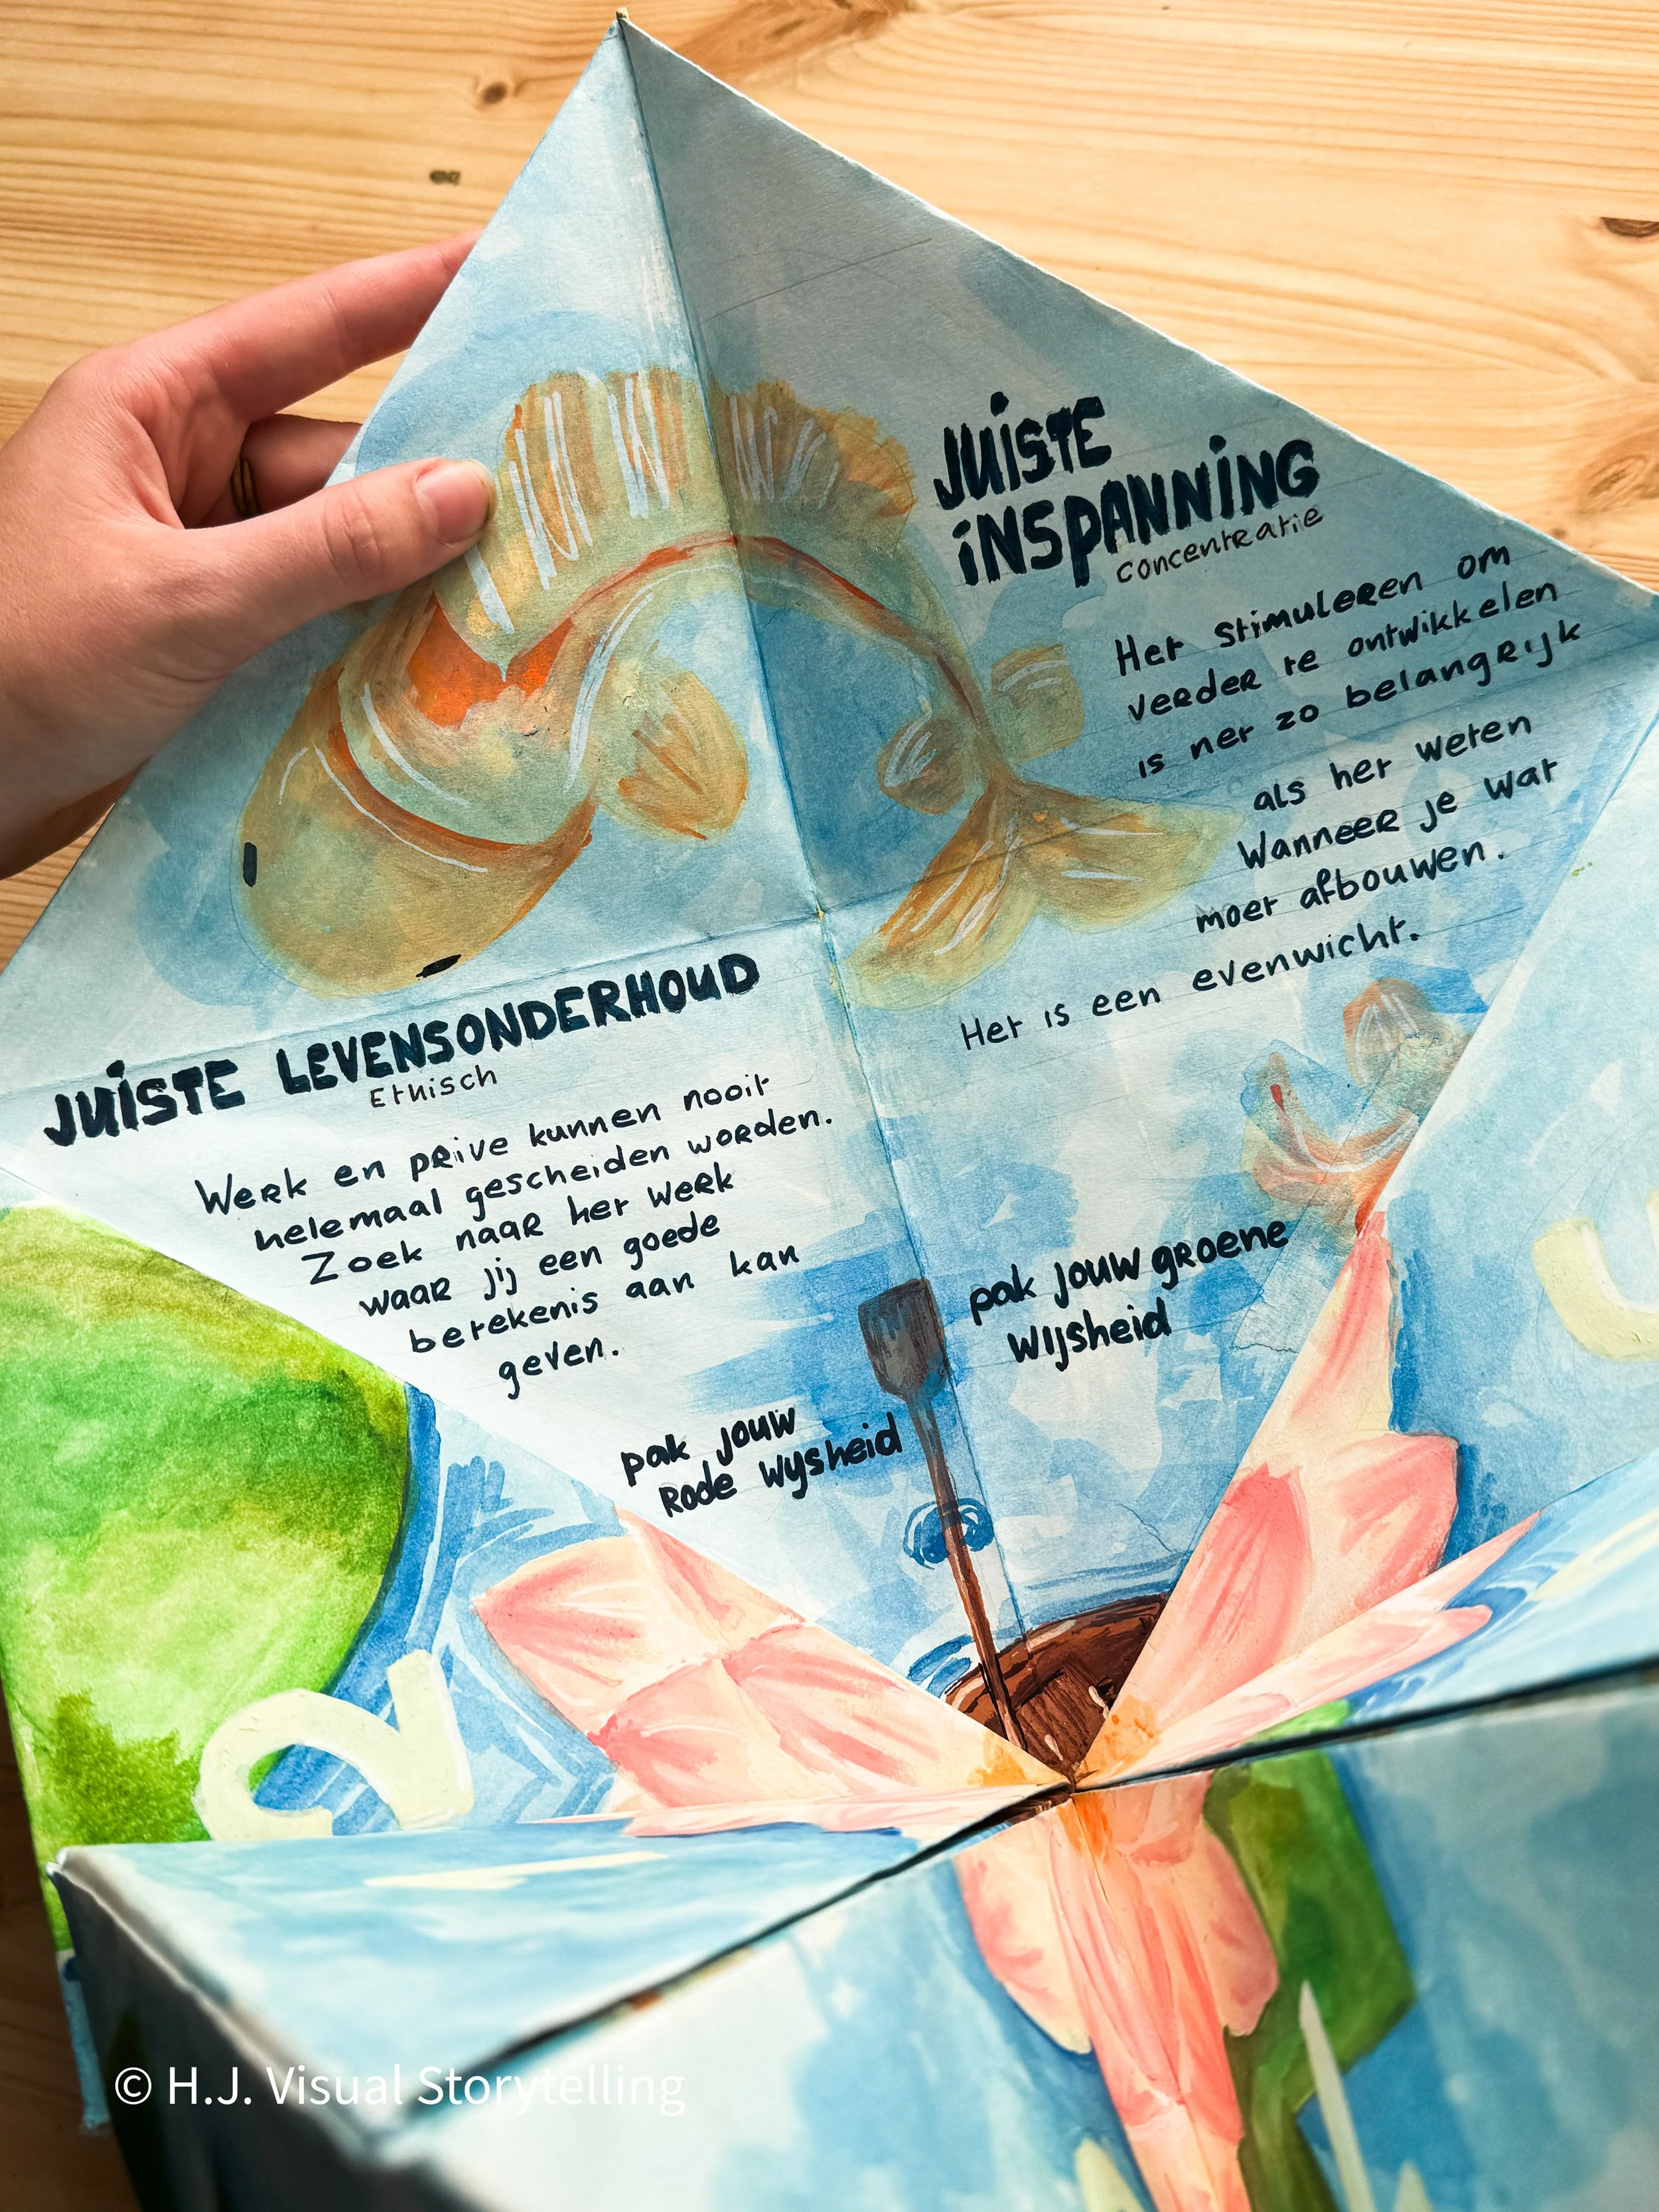 JUISTE
INSPANNING
concentratie
Het stimuleren om
verder te ontwikkelen
is net zo belangrijk
als het weten
Wanneer je wat
moet afbouwen.
Het is een evenwicht.
pak jouw groene
wijsheid
JUISTE LEVENSONDERHOUD
Ethisch
Werk en prive kunnen nooit
helemaal gescheiden worden.
Zoek naar het werk
waar jij een goede
betekenis aan kan
geven.
pak jouw
Rode wijsheid
2
© H.J. Visual Storytelling